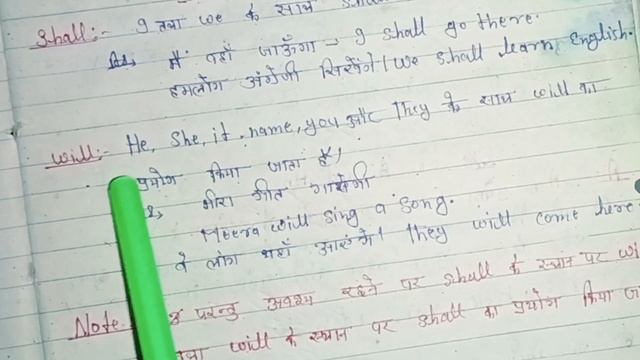 Shall:- I तथा we के साथ
मैं वहाँ जाऊँगा - I shall go there.
हमलोग अंग्रेजी सिखेंगे। We shall learn English.
Will:- He, She, it, name, you और They के साथ will का
प्रयोग किया जाता है।
मीरा गीत गायेगी
Meera will sing a song.
वे लोग यहाँ आएंगे। They will come here.
Note परन्तु अवश्य रहने पर shall के स्थान पर wi
will के स्थान पर shall का प्रयोग किया जा